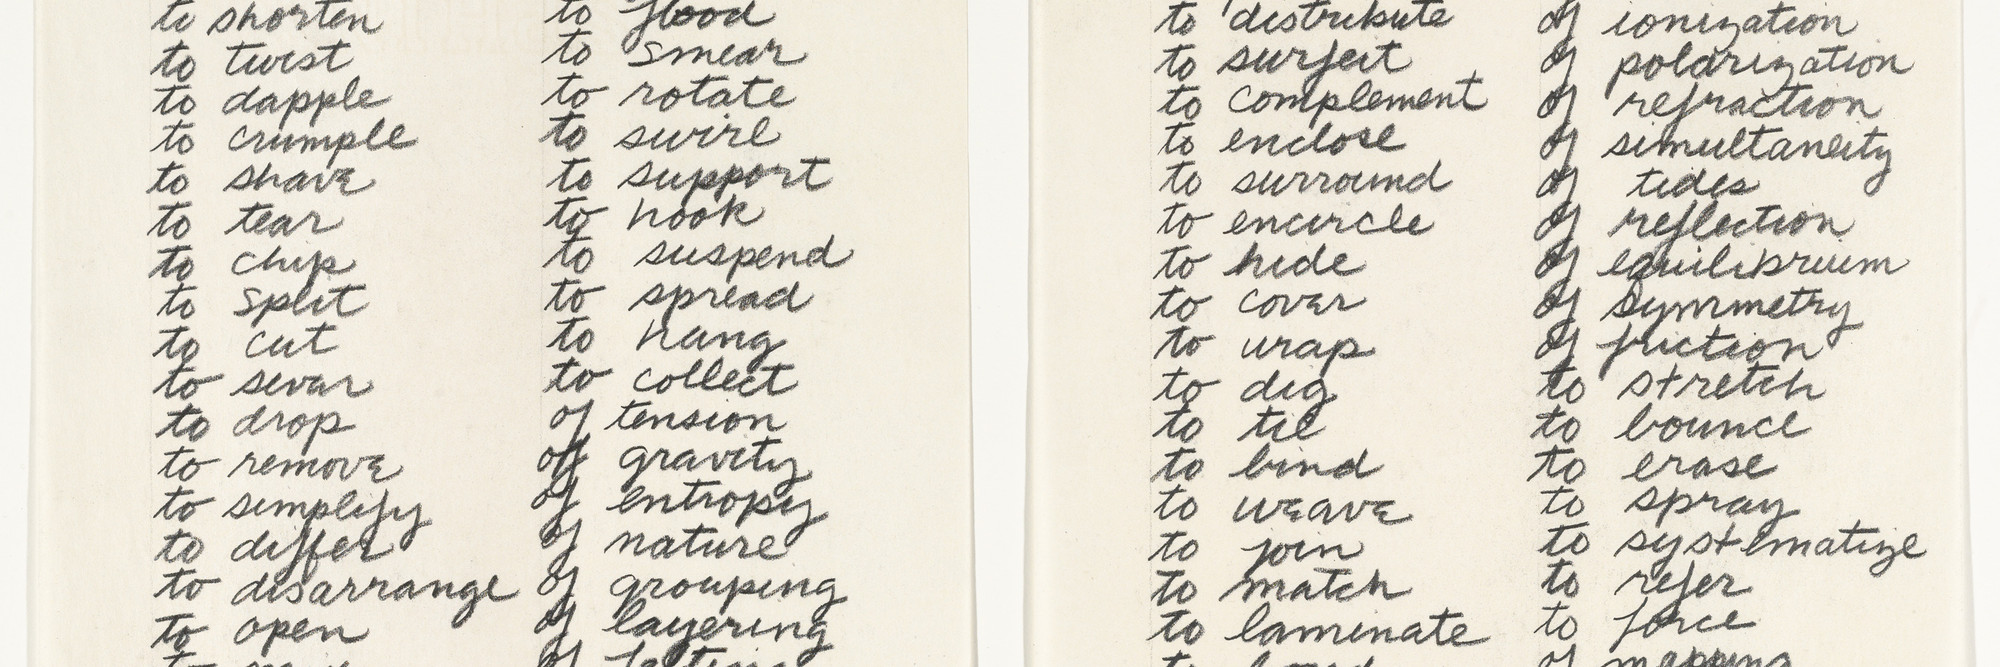 to shorten
to twist
to dapple
to crumple
to shave
to tear
to chip
to split
to cut
to sever
to drop
to remove
to simplify
to differ
to disarrange
to open
to flood
to smear
to rotate
to swirl
to support
to hook
to suspend
to spread
to hang
to collect
of tension
of gravity
of entropy
of nature
of grouping
of layering
of felting
to distribute
to surfeit
to complement
to enclose
to surround
to encircle
to hide
to cover
to wrap
to dig
to tie
to bind
to weave
to join
to match
to laminate
to bond
of ionization
of polarization
of refraction
of simultaneity
of tides
of reflection
of equilibrium
of symmetry
of friction
to stretch
to bounce
to erase
to spray
to systematize
to refer
to force
of mapping